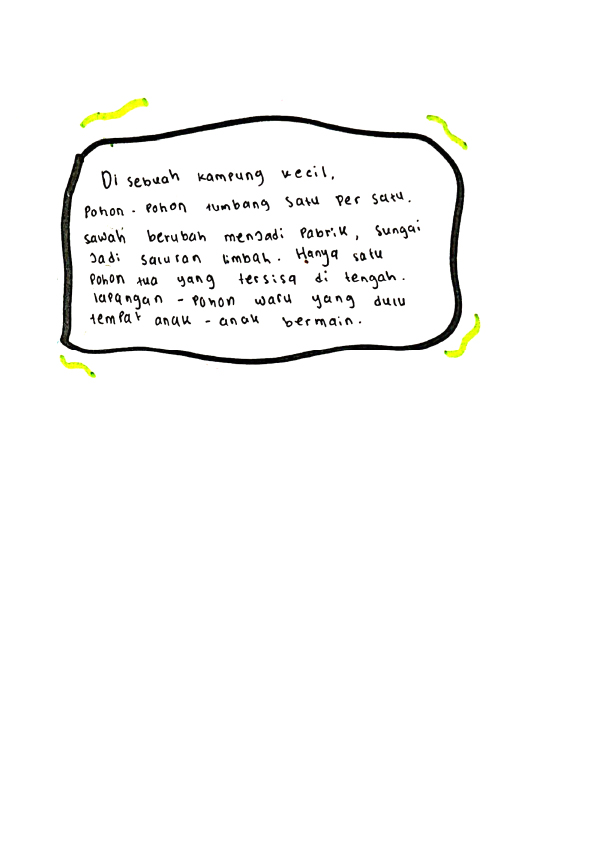 Di sebuah kampung kecil,
Pohon - Pohon tumbang satu per satu.
sawah berubah menjadi Pabrik, sungai
jadi saluran limbah. Hanya satu
Pohon tua yang tersisa di tengah.
lapangan - Pohon waru yang dulu
tempat anak - anak bermain.